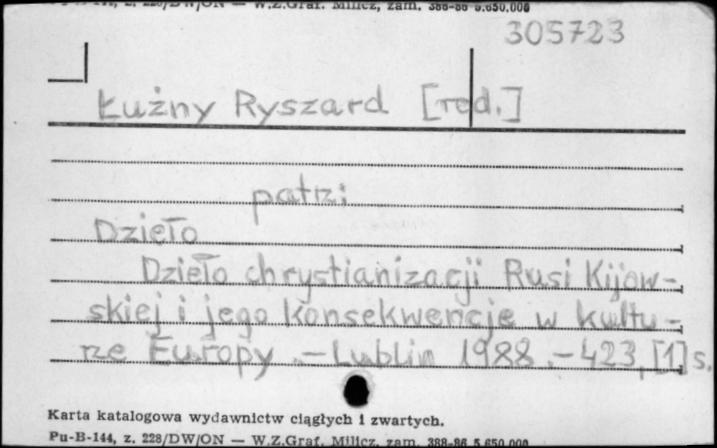 Pu-B-144, z. 228/DW/ON — W.Z.Graf. Milicz, zam. 388-86 5.650.000
305723
Łużny Ryszard [red.]
patrz:
Dzieło
Dzieło chrystianizacji Rusi Kijow-
skiej i jego konsekwencje w kultu-
rze Europy .- Lublin 1988 .- 423, [1] s.
Karta katalogowa wydawnictw ciągłych i zwartych.
Pu-B-144, z. 228/DW/ON — W.Z.Graf. Milicz, zam. 388-86 5.650.000